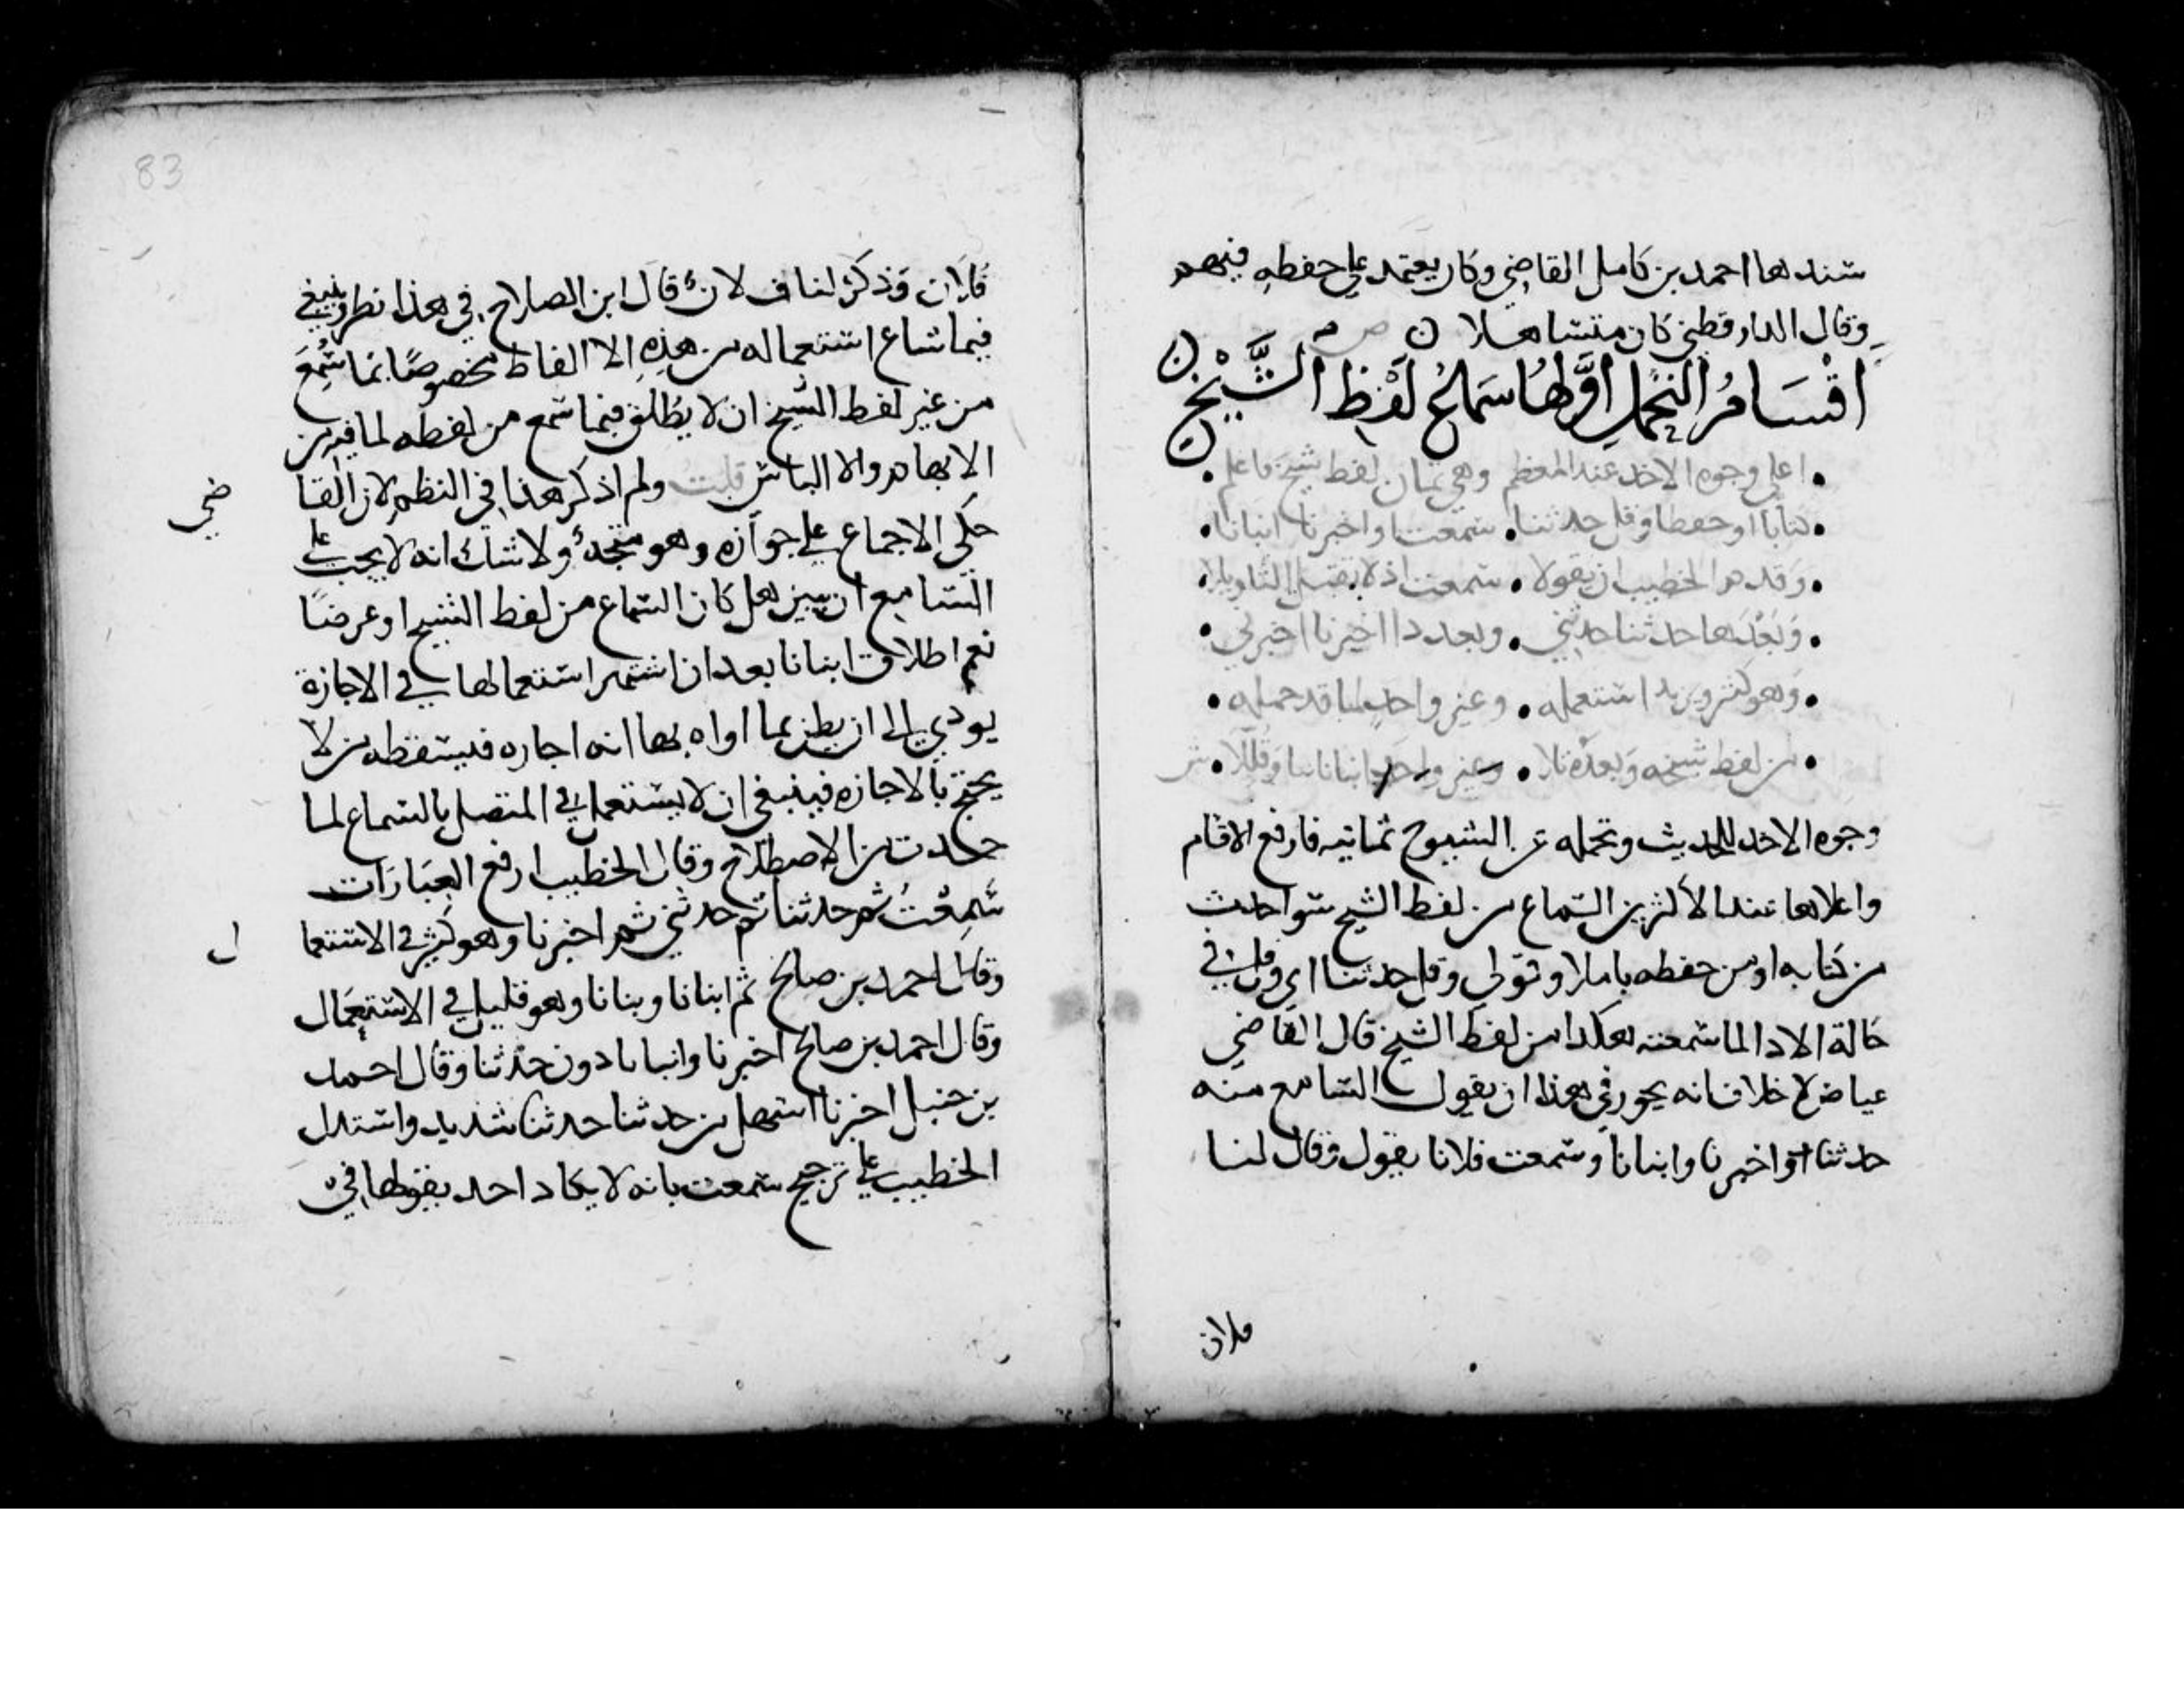 سندها احمد بن كامل القاضي وكان يعتمد علي حفظه فيهم
وقال الدارقطني كان متساهلا ن
اقْسَامُ التحَمُّلِ اوَّلهَا سَمَاعُ لَفْظِ الشَّيْخِ
اعلي وجوه الاخذ عند المعظم وهي ثمان لفظ شيخ فاعلم
كتابا او حفظا وقل حدثنا سمعت او اخبرنا انبانا
وقدم الخطيب ان يقولا سمعت اذ لا يقبل التاويلا
وَبَعْدَها حدثنا حدثني وبعد ذا اخبرنا اخبرني
وَهو كثير ويزيد استعمله وغير واحد لما قد حمله
من لفظ شيخه وَبعده تلا انبانا نبانا وَقُلِّلَا ش
وجوه الاخذ للحديث وتحمله عن الشيوخ ثمانيه فارفع الاقسام
واعلاها عند الاكثرين السماع من لفظ الشيخ سوا حدث
من كتابه او من حفظه باملا وقولي وقل حدثنا اي وقل في
حالة الادا لما سمعته هكذا من لفظ الشيخ قال القاضي
عياض لا خلاف انه يجوز في هذا ان يقول السامع منه
حدثنا او اخبرنا وانبانا وسمعت فلانا يقول وقال لنا
فلان
83
فلان وَذكر لنا فلان قال ابن الصلاح في هذا نظر وينبغي
فيما شاع استعماله من هذه الالفاظ مخصوصًا بما سُمِعَ
من غير لفظ الشيخ ان لا يطلق فيما سمع من لفظه لما فيه من
الايهام والالباس قلت ولم اذكر هذا في النظم لان القا
ضي
حكي الاجماع علي جوازه وهو متجه ولا شك انه لا يجب علي
السامع ان يبين هل كان السماع من لفظ الشيخ او عرضًا
نعم اطلاق انبانا بعد ان اشتهر استعمالها في الاجازة
يودي الي ان يظن بما اداه بها انه اجازه فيسقطه من لا
يحتج بالاجازه فينبغي ان لا يستعمل في المتصل بالسماع لما
حدث من الاصطلاح وقال الخطيب ارفع العِبَارَات
سَمِعْتُ ثم حدثنا ثم حدثني ثم اخبرنا وهو كثير في الاستعما
ل
وقال احمد بن صالح ثم انبانا ونبانا وهو قليل في الاستعمال
وقال احمد بن صالح اخبرنا وانبانا دون حدثنا وقال احمد
بن حنبل اخبرنا اسهل من حدثنا حدثنا شديد واستدل
الخطيب علي ترجيح سمعت بانه لا يكاد احد يقولها في